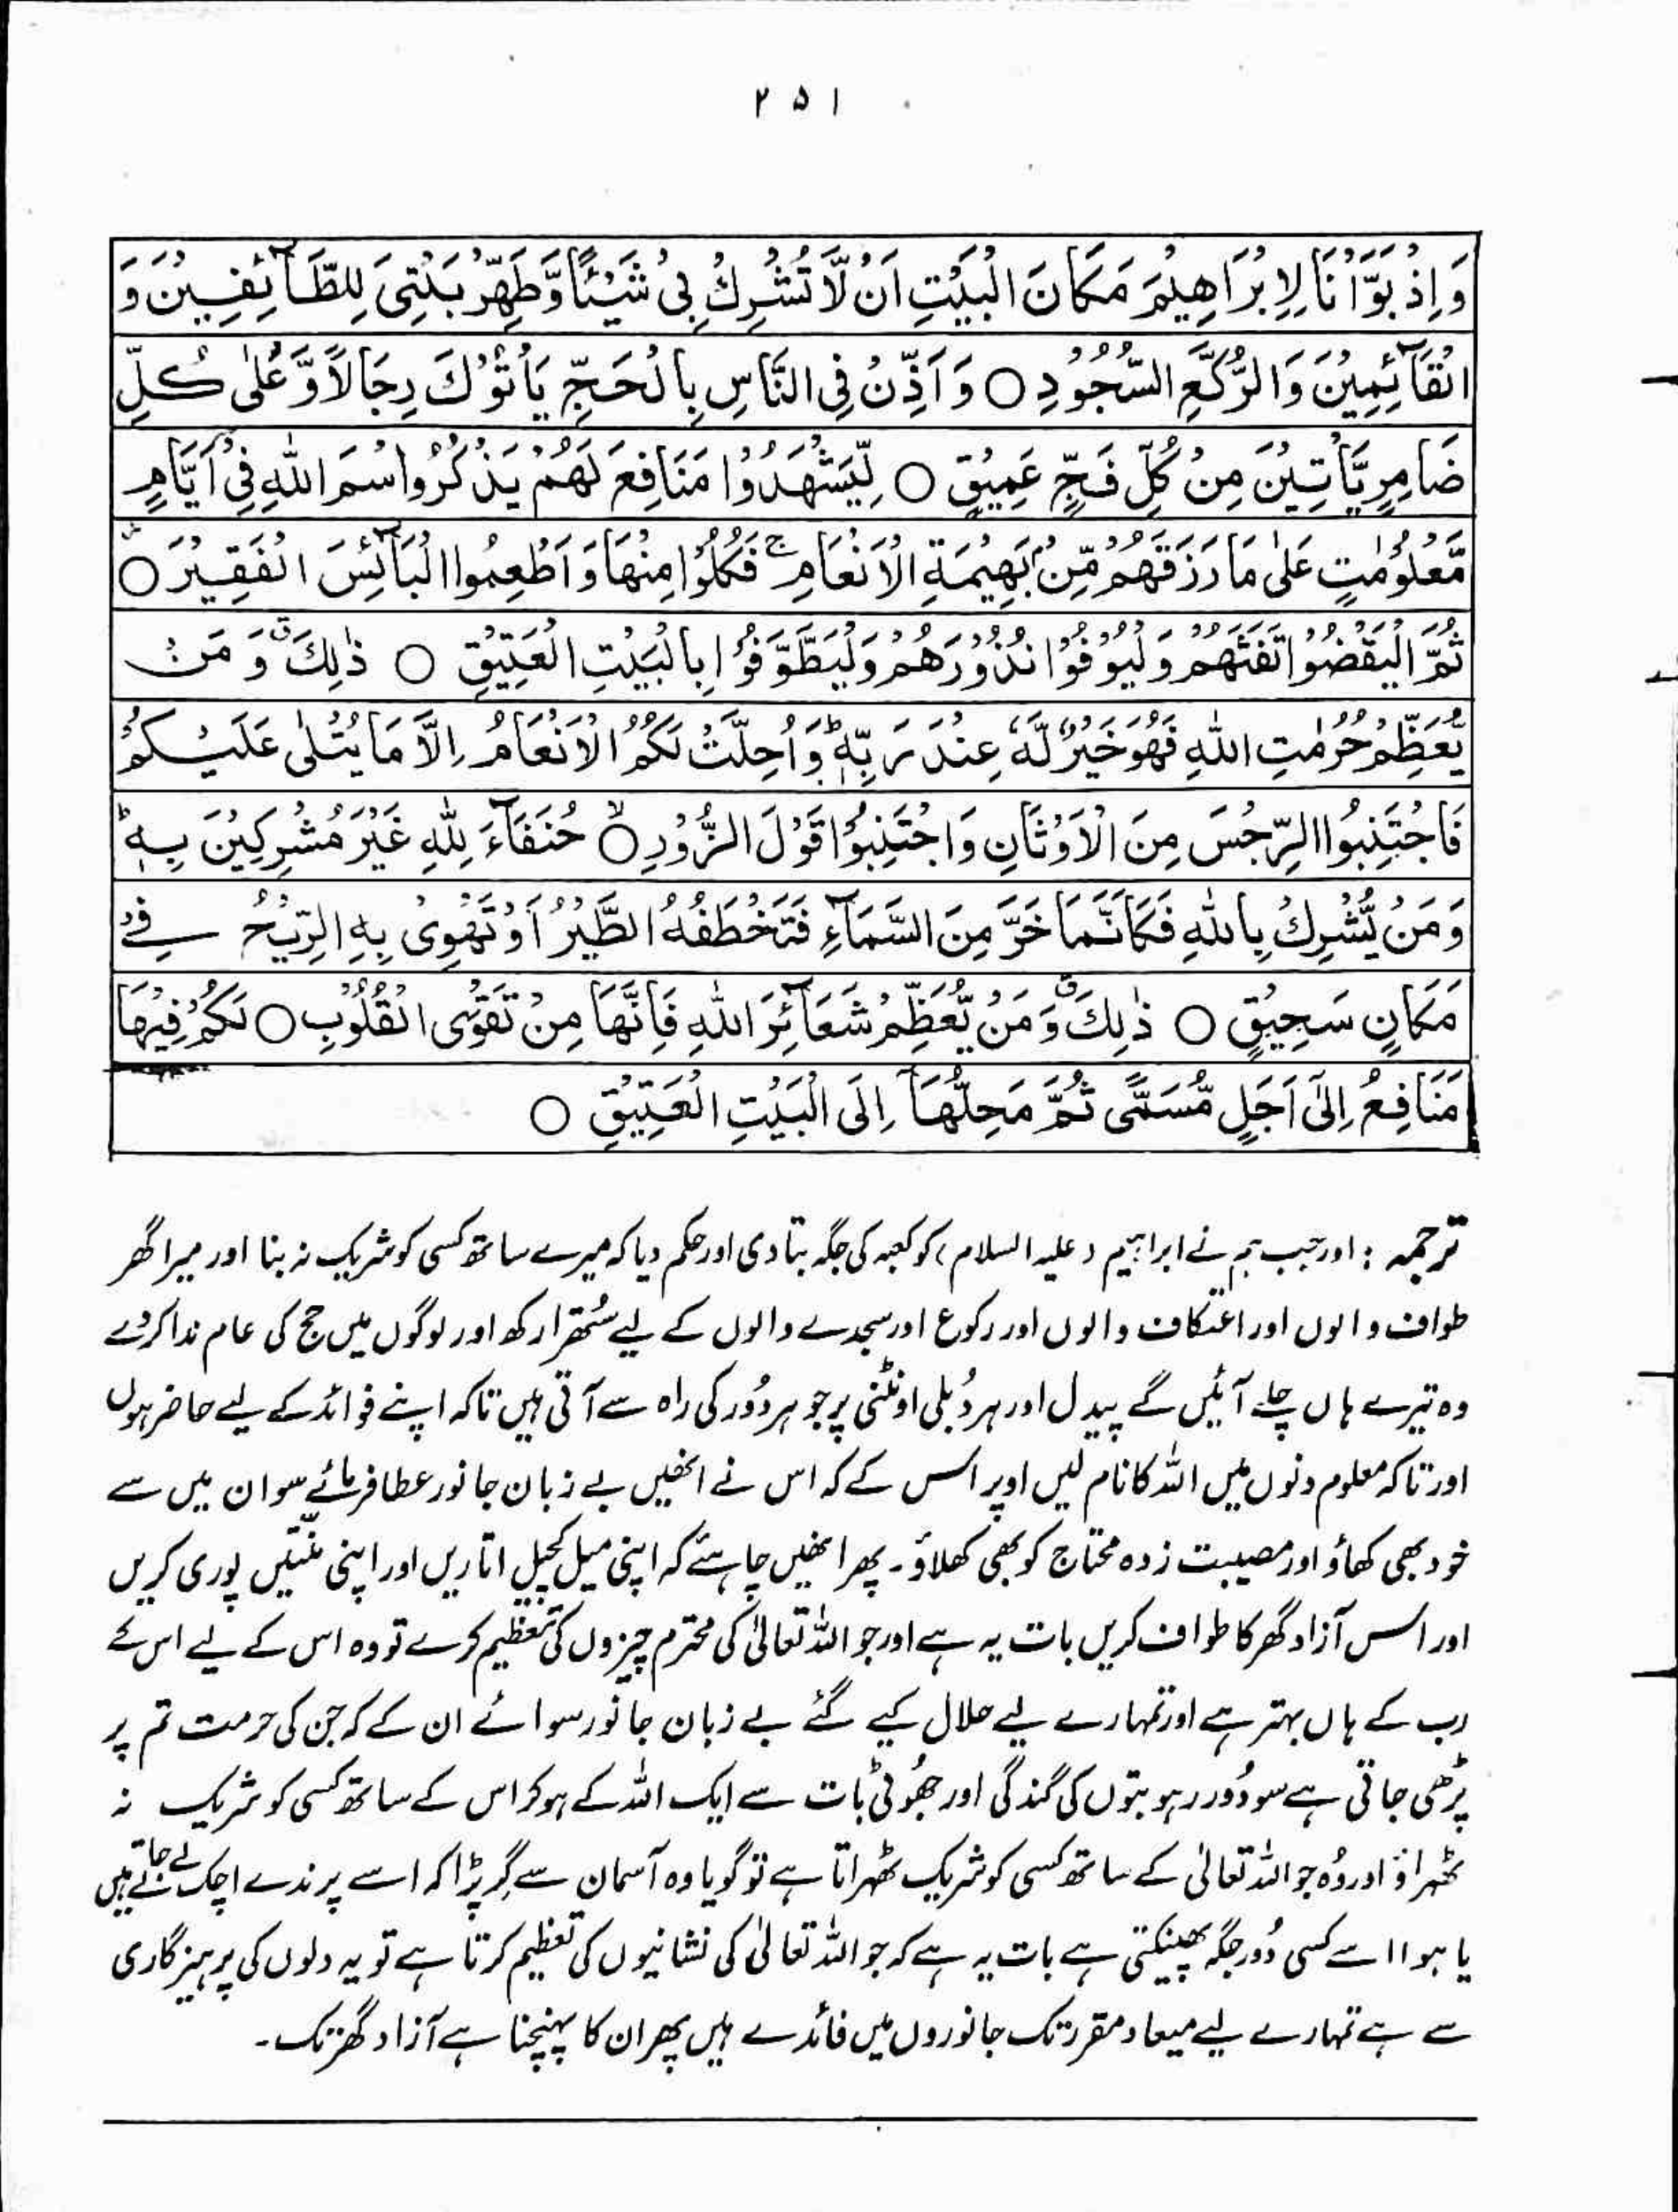 ۲۵۱
وَاِذْ بَوَّاْنَا لِاِبْرَاهِيْمَ مَكَانَ الْبَيْتِ اَنْ لَّا تُشْرِكْ بِىْ شَيْئًا وَّطَهِّرْ بَيْتِىَ لِلطَّآئِفِيْنَ وَ
الْقَآئِمِيْنَ وَالرُّكَّعِ السُّجُوْدِ ○ وَاَذِّنْ فِى النَّاسِ بِالْحَجِّ يَاْتُوْكَ رِجَالًا وَّعَلٰى كُلِّ
ضَامِرٍ يَّاْتِيْنَ مِنْ كُلِّ فَجٍّ عَمِيْقٍ ○ لِّيَشْهَدُوْا مَنَافِعَ لَهُمْ يَذْكُرُوا اسْمَ اللّٰهِ فِىْ اَيَّامٍ
مَّعْلُوْمٰتٍ عَلٰى مَا رَزَقَهُمْ مِّنْۢ بَهِيْمَةِ الْاَنْعَامِ ۚ فَكُلُوْا مِنْهَا وَاَطْعِمُوا الْبَآئِسَ الْفَقِيْرَ ○
ثُمَّ الْيَقْضُوْا تَفَثَهُمْ وَلْيُوْفُوْا نُذُوْرَهُمْ وَلْيَطَّوَّفُوْا بِالْبَيْتِ الْعَتِيْقِ ○ ذٰلِكَ ۗ وَمَنْ
يُّعَظِّمْ حُرُمٰتِ اللّٰهِ فَهُوَ خَيْرٌ لَّهٗ عِنْدَ رَبِّهٖ ؕ وَاُحِلَّتْ لَكُمُ الْاَنْعَامُ اِلَّا مَا يُتْلٰى عَلَيْكُمْ
فَاجْتَنِبُوا الرِّجْسَ مِنَ الْاَوْثَانِ وَاجْتَنِبُوْا قَوْلَ الزُّوْرِ ○ ۙ حُنَفَآءَ لِلّٰهِ غَيْرَ مُشْرِكِيْنَ بِهٖ ؕ
وَمَنْ يُّشْرِكْ بِاللّٰهِ فَكَاَنَّمَا خَرَّ مِنَ السَّمَآءِ فَتَخْطَفُهُ الطَّيْرُ اَوْ تَهْوِىْ بِهِ الرِّيْحُ فِىْ
مَكَانٍ سَحِيْقٍ ○ ذٰلِكَ ۗ وَمَنْ يُّعَظِّمْ شَعَآئِرَ اللّٰهِ فَاِنَّهَا مِنْ تَقْوَى الْقُلُوْبِ ○ لَكُمْ فِيْهَا
مَنَافِعُ اِلٰٓى اَجَلٍ مُّسَمًّى ثُمَّ مَحِلُّهَآ اِلَى الْبَيْتِ الْعَتِيْقِ ○
ترجمہ : اور جب ہم نے ابراہیم (علیہ السلام) کو کعبہ کی جگہ بتا دی اور حکم دیا کہ میرے ساتھ کسی کو شریک نہ بنا اور میرا گھر
طواف والوں اور اعتکاف والوں اور رکوع اور سجدے والوں کے لیے سُتھرا رکھ اور لوگوں میں حج کی عام ندا کردے
وہ تیرے ہاں چلے آئیں گے پیدل اور ہر دُبلی اونٹنی پر جو ہر دُور کی راہ سے آتی ہیں تاکہ اپنے فوائد کے لیے حاضر ہوں
اور تاکہ معلوم دنوں میں اللہ کا نام لیں اوپر اس کے کہ اس نے انھیں بے زبان جانور عطا فرمائے سو ان میں سے
خود بھی کھاؤ اور مصیبت زدہ محتاج کو بھی کھلاؤ۔ پھر انھیں چاہئے کہ اپنی میل کچیل اتاریں اور اپنی منّتیں پوری کریں
اور اس آزاد گھر کا طواف کریں بات یہ ہے اور جو اللہ تعالیٰ کی محترم چیزوں کی تعظیم کرے تو وہ اس کے لیے اس کے
رب کے ہاں بہتر ہے اور تمہارے لیے حلال کیے گئے بے زبان جانور سوائے ان کے کہ جن کی حرمت تم پر
پڑھی جاتی ہے سو دُور رہو بتوں کی گندگی اور جھُوٹی بات سے ایک اللہ کے ہو کر اس کے ساتھ کسی کو شریک نہ
ٹھہراؤ اور وُہ جو اللہ تعالیٰ کے ساتھ کسی کو شریک ٹھہراتا ہے تو گویا وہ آسمان سے گر پڑا کہ اسے پرندے اچک لے جاتے ہیں
یا ہوا اسے کسی دُور جگہ پھینکتی ہے بات یہ ہے کہ جو اللہ تعالیٰ کی نشانیوں کی تعظیم کرتا ہے تو یہ دلوں کی پرہیزگاری
سے ہے تمہارے لیے میعاد مقرر تک جانوروں میں فائدے ہیں پھر ان کا پہنچنا ہے آزاد گھر تک۔